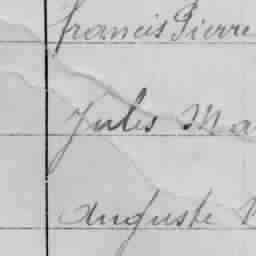 francis Pierre
Jules Ma
Auguste